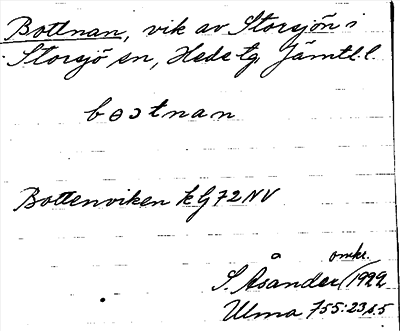 Bottnan, vik av Storsjön i
Storsjö sn, Hede tg. Jämtl. l.
bɵɔtnan
Bottenviken k G 72 NV
omkr.
S. Åsander / 1922
Ulma 755:23, s. 5